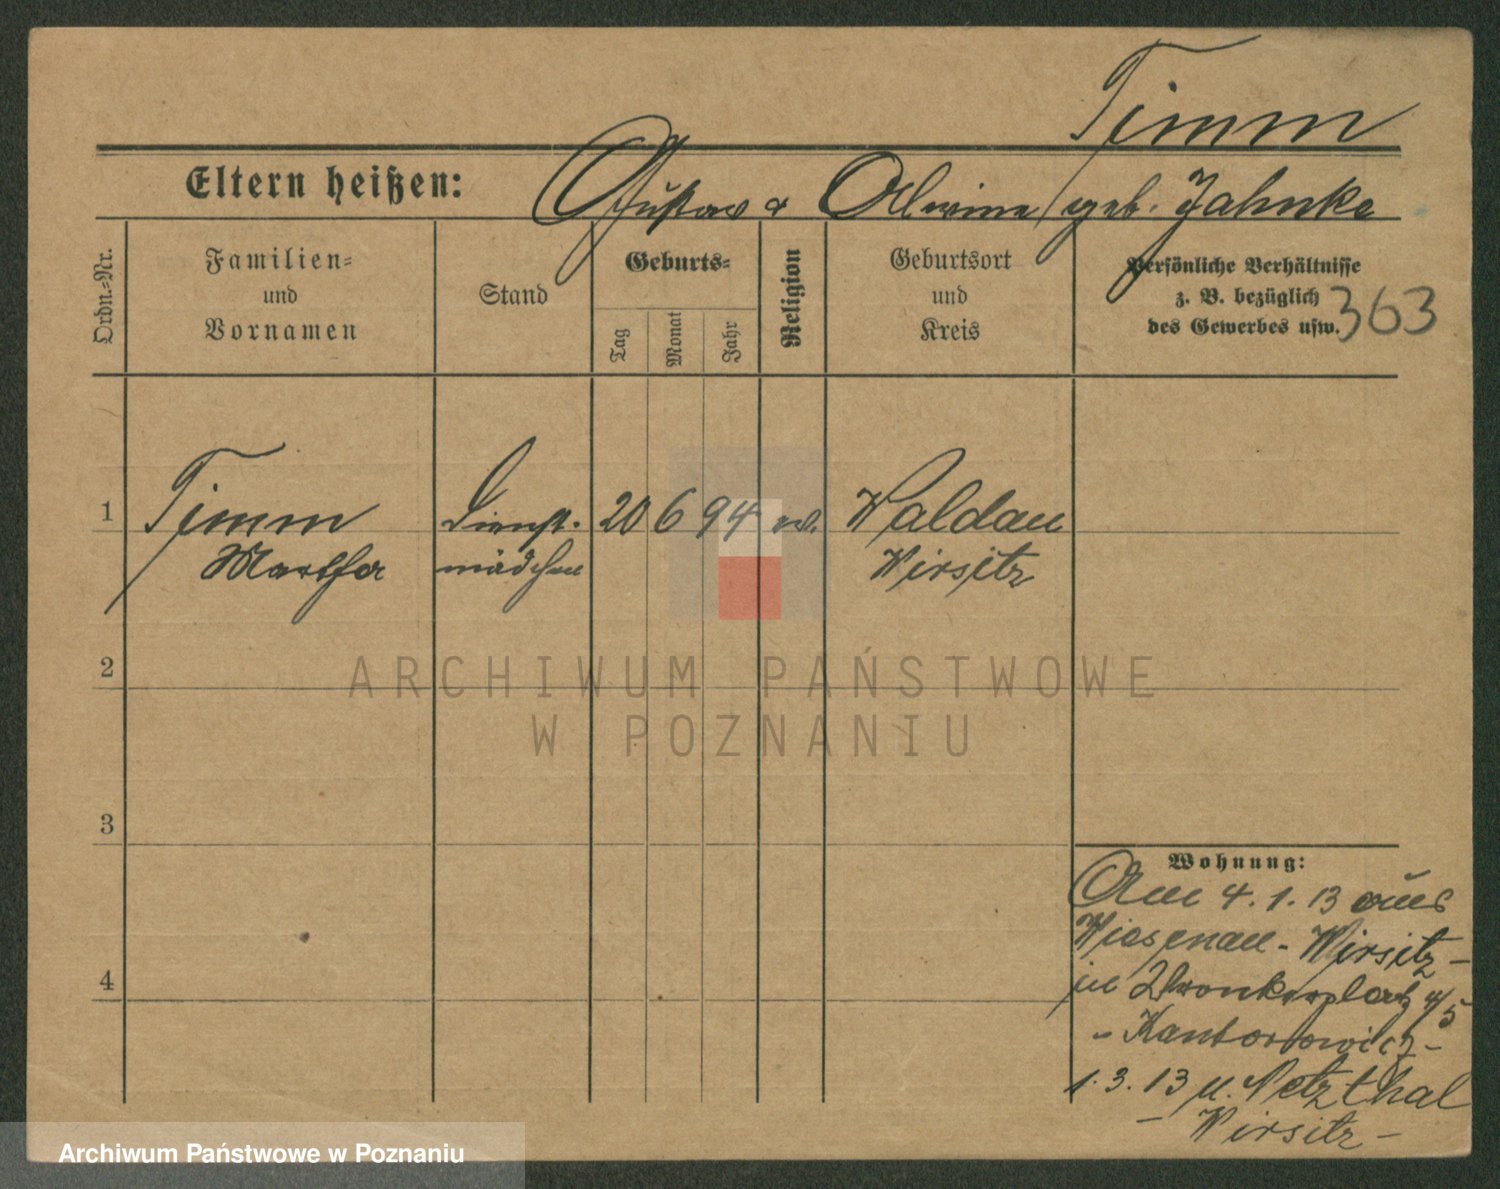 Timm
Eltern heißen: Gustav & Alwine geb. Jahnke
Ordn.-Nr.
Familien- und Vornamen
Stand
Geburts-
Tag
Monat
Jahr
Religion
Geburtsort und Kreis
Persönliche Verhältnisse
z. B. bezüglich
des Gewerbes usw.
363
1 Timm Dienst- 20 6 94 ev. Waldau
Martha mädchen Wirsitz
2
3
4
Wohnung:
Am 4.1.13 aus
Wiesenau - Wirsitz -
in Wronkerplatz 4/5
- Kantorowicz -
1.3.13 n. Netzthal
- Wirsitz -
ARCHIWUM PAŃSTWOWE
W POZNANIU
Archiwum Państwowe w Poznaniu